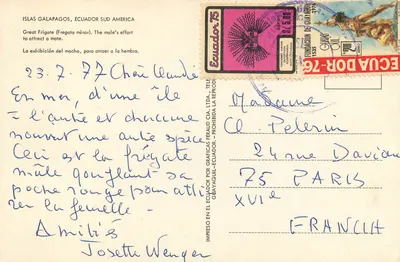 ISLAS GALAPAGOS, ECUADOR SUD AMERICA
Great Frigate (Fregata minor). The male's effort
to attract a mate.
La exhibición del macho, para atraer a la hembra.
23.7.77 Chère Claudie
En mer, d'une île
à l'autre et chacune
nourrit une autre espèce
Ceci est la frégate
mâle gonflant sa
poche rouge pour atti-
rer la femelle.
Amitiés
Josette Wenger
IMPRESO EN EL ECUADOR POR GRAFICAS FERAUD CIA. LTDA.
GUAYAQUIL-ECUADOR - PROHIBIDA LA REPRODU
Ecuador 75
ECUADOR-76
Madame
Cl. Pelerin
24 rue Davioud
75 PARIS
XVIe
FRANCIA